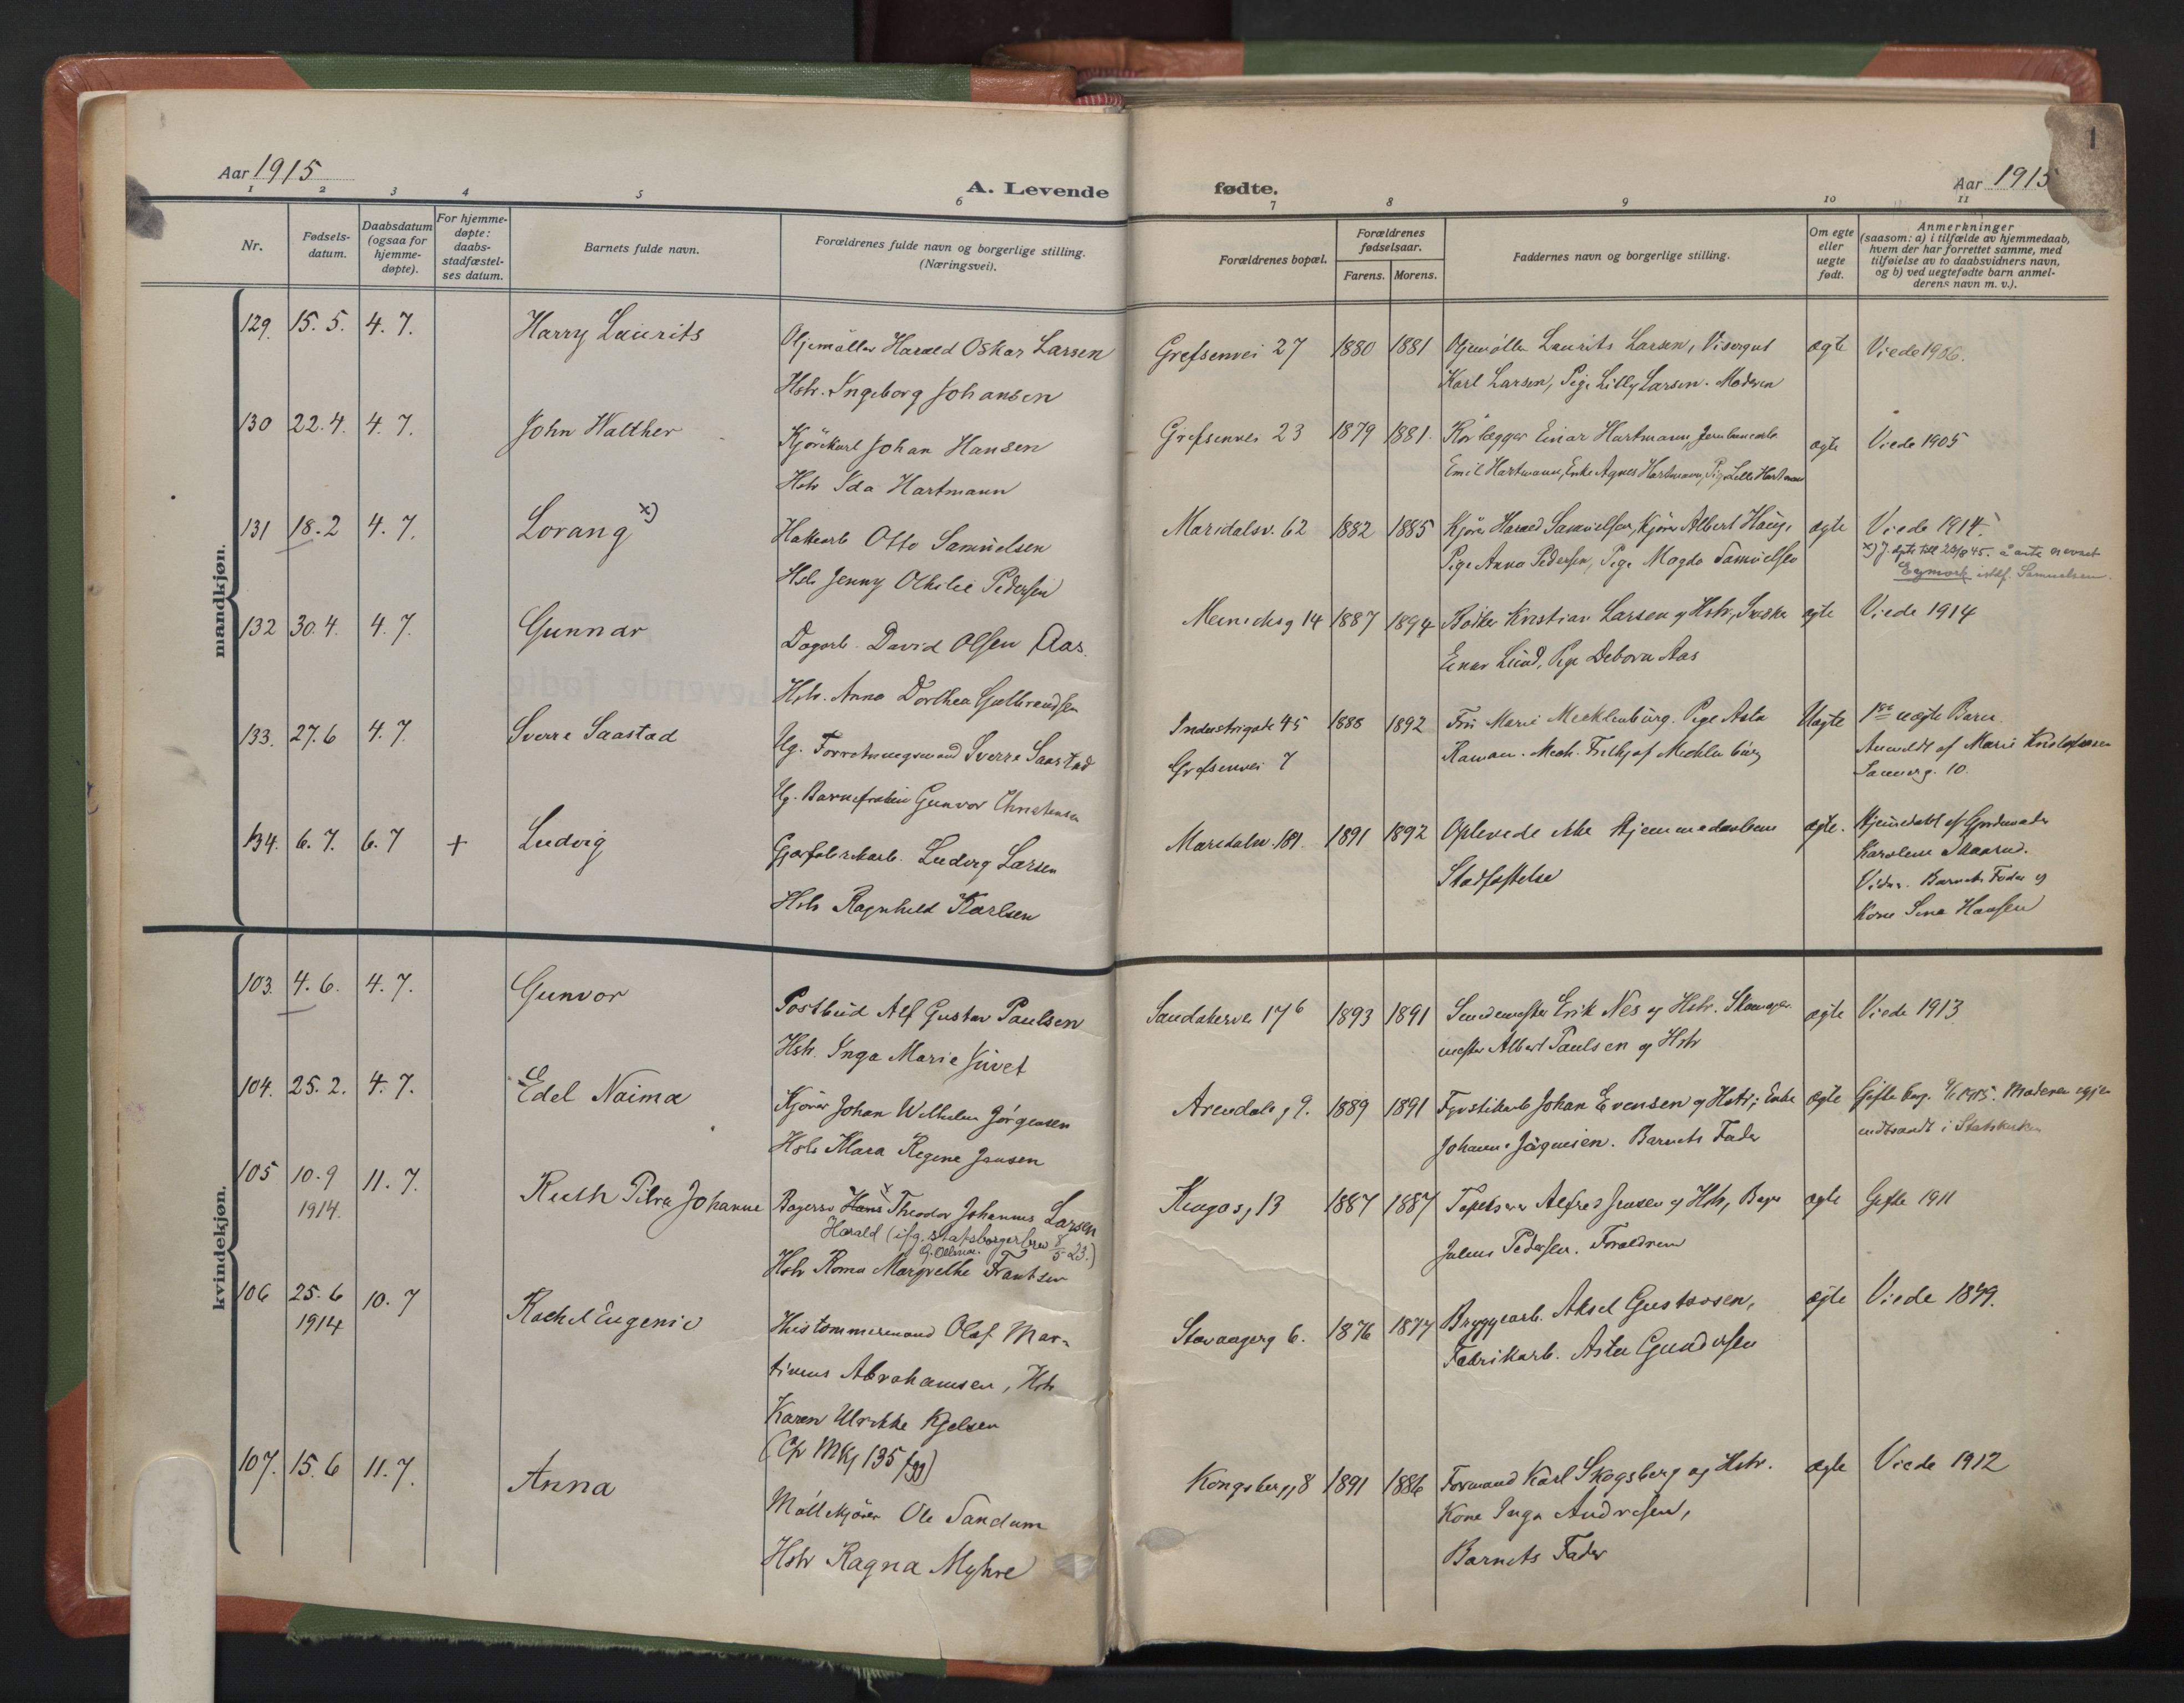 Aar 1915
A. Levende
1 2 3 4 5 6
Nr.
Fødsels-
datum.
Daabsdatum
(ogsaa for
hjemme-
døpte).
For hjemme-
døpte:
daabs-
stadfæstel-
ses datum.
Barnets fulde navn.
Forældrenes fulde navn og borgerlige stilling.
(Næringsvei).
mandkjøn.
129. 15. 5. 4. 7. Harry Laurits
Oljemøller Harald Oskar Larsen
Hstr. Ingeborg Johansen
130 22. 4. 4. 7. John Walther
Kjörekarl Johan Hansen
Hstr Ida Hartmann
131 18. 2 4. 7. Lorang x)
Otto Samuelsen
Hstr Jenny Othilie Pedersen
132 30. 4. 4. 7. Gunnar
Dagarb. David Olsen Aas.
Hstr. Anna Dorthea Gulbrandsen
133. 27. 6 4. 7. Sverre Saastad
Ug. Forretningsmand Sverre Saastad
Ug. Gunvor Christensen
134. 6. 7. 6. 7 + Ludvig
Ludvig Larsen
Hstr Ragnhild Karlsen
kvindekjøn.
103. 4. 6. 4. 7. Gunvor
Postbud Alf Gustav Paulsen
Hstr. Inga Marie Juvet
104. 25. 2. 4. 7. Edel Naima
Kjörer Johan Wilhelm Jörgensen
Hstr Klara Regine Jansen
105 10. 9 11. 7. Ruth Johanne
1914.
Bagersv Hans x Theodor Johannes Larsen
Harald (ifg. statsborgerbrev 8/5 23.)
Hstr Roma Margrethe Frantsen
106 25. 6 10. 7 Rachel Eugenie
1914
Hustømmermand Olaf Mar-
tinius Abrahamsen, Hstr
Karen Ulrikke Kjelsen
(Cfr Mkj 135/99)
107. 15. 6 11. 7. Anna
Ole Sandum
Hstr Ragna Myhre
1
fødte.
Aar 1915
7 8 9 10 11
Forældrenes bopæl.
Forældrenes
fødselsaar.
Farens. Morens.
Faddernes navn og borgerlige stilling.
Om egte
eller
uegte
født.
Anmerkninger
(saasom: a) i tilfælde av hjemmedaab,
hvem der har forrettet samme, med
tilføielse av to daabsvidners navn,
og b) ved uegtefødte barn anmel-
derens navn m. v.).
Grefsenvei 27 1880 1881 Oljemøller Laurits Larsen, Visergut ægte Viede 1906.
Karl Larsen, Pige Lilly Larsen. Moderen
Grefsenvei 23 1879 1881. Rörlægger Einar Hartmann, Jernbanearb. ægte Viede 1905
Emil Hartmann, Enke Agnes Hartmann, Pige Hartmann
Maridalsv. 62 1882 1885 Kjörer Harald Samuelsen, Kjörer Albert Haug, ægte Viede 1914.
Pige Anna Pedersen, Pige Magda Samuelsen
x)
istdf. Samuelsen.
14 1887 1894 Bödker Kristian Larsen og Hstr, ægte Viede 1914
Einar Lund, Pige Debora Aas
Industrigate 45 1888 1892 Fru Marie Mecklenburg. Pige Asta Uægte 1ste uægte Barn.
Grefsenvei 7
Anmeldt af Marie Kristofersen
10.
Maridalsv. 181. 1891 1892 Oplevede ikke Hjemmedaabens ægte. Hjemdöbt af
Stadfestelse
Karoline
Vidn. Barnets Fader og
Kone Hansen
Sandakervei 17b 1893 1891 Erik Nes og Hstr. ægte Viede 1913
mester Albert Paulsen og Hstr
Arendalsg 9. 1889 1891 Johan Evensen og Hstr, Enke ægte Gifte borg. 1915. Moderen
Johanne Jörgensen. Barnets Fader
13 1887 1887 Tapetserer Alfred Jensen og Hstr, Bager ægte Gifte 1911
Julius Pedersen. Forældrene
Stavangerg 6. 1876 1877 Bryggearb. Aksel Gustavsen, ægte Viede 1899.
Fabrikarb. Asta Gundersen
Kongsbergg 8 1891 1886 Formand Karl Skogsberg og Hstr. ægte Viede 1912
Kone Inga Andresen,
Barnets Fader